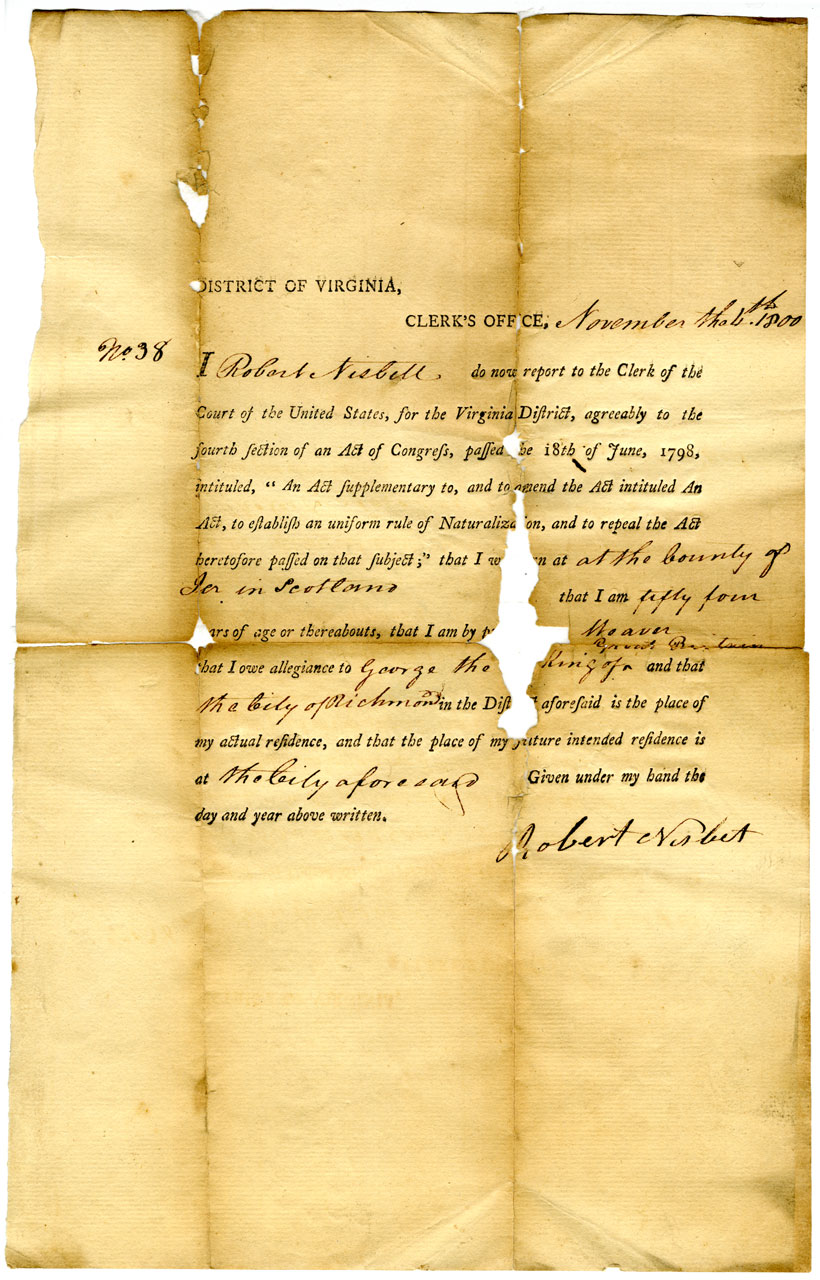 DISTRICT OF VIRGINIA,
CLERK'S OFFICE, November the 6th. 1800
No. 38
I Robert Nisbett do now report to the Clerk of the
Court of the United States, for the Virginia District, agreeably to the
fourth section of an Act of Congress, passed he 18th of June, 1798,
intituled, " An Act supplementary to, and to amend the Act intituled An
Act, to establish an uniform rule of Naturalization, and to repeal the Act
heretofore passed on that subject;" that I w n at at the County of
in Scotland that I am fifty four
ars of age or thereabouts, that I am by Weaver
Great Britain
that I owe allegiance to George the King of and that
the City of Richmond in the Dist aforesaid is the place of
my actual residence, and that the place of my future intended residence is
at the City aforesaid Given under my hand the
day and year above written.
Robert Nisbet